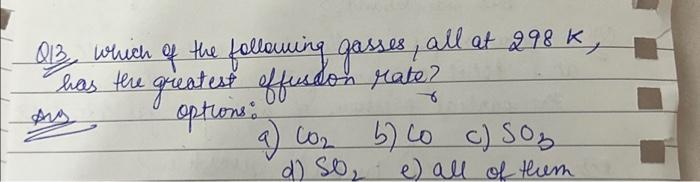 Q13, which of the following gasses, all at 298 K,
has the greatest effusion rate?
Ans options:
a) CO2 b) CO c) SO3
d) SO2 e) all of them